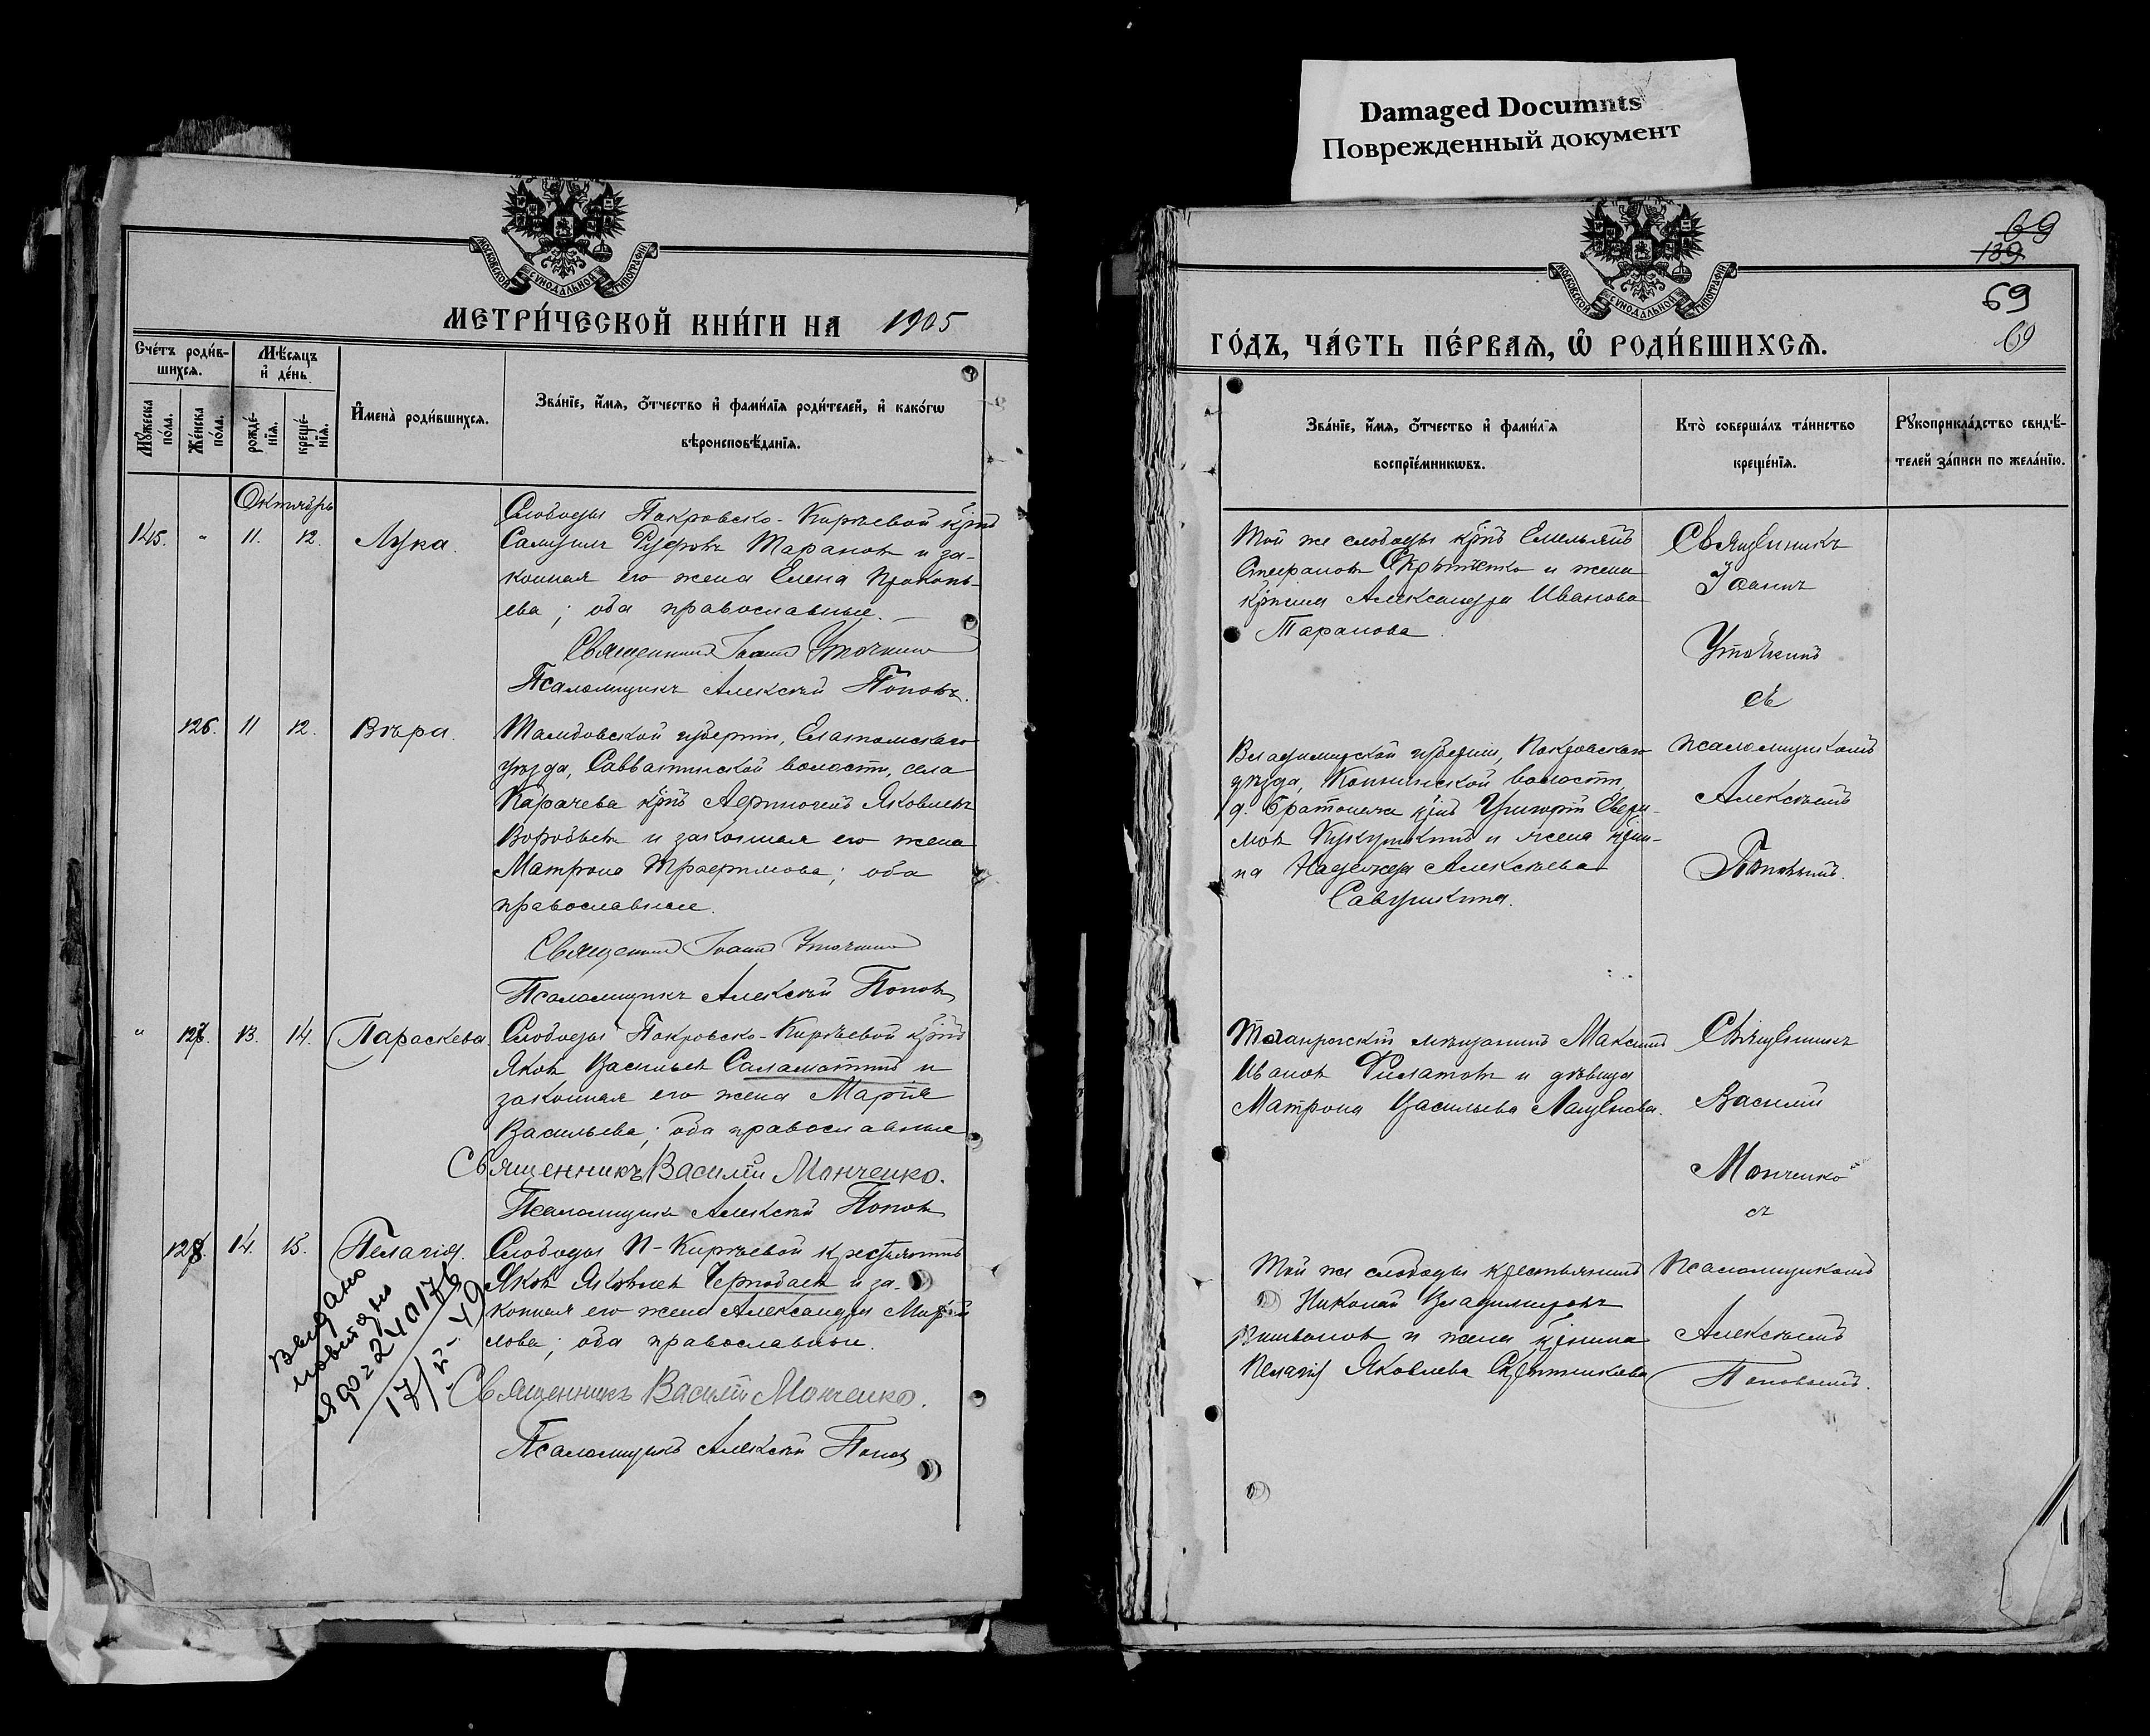 Damaged Documnts
Поврежденный документ
МОСКОВСКОЙ СУНОДАЛЬНОЙ ТИПОГРАФІИ
МЕТРИ́ЧЕСКОЙ КНИ́ГИ НА 1905
Сче́тъ роди́в-
шихсѧ.
Мѣ́сѧцъ
и҆ де́нь.
Мꙋ́жеска по́ла.
Же́нска по́ла.
рожде́-
нїѧ.
креще́-
нїѧ.
И҆мена̀ роди́вшихсѧ.
Зва́нїе, и҆́мѧ, ѻ҆́тчество и҆ фами́лїѧ роди́телей, и҆ како́гѡ
вѣроисповѣ́данїѧ.
Октябрь
145. " 11. 12. Лука.
Слободы Покровско-Киреевой крнъ
Самуилъ Руфовъ Тарановъ и за-
конная его жена Елена Прокопь-
ева; оба православные.
Священникъ Іоаннъ Уточкинъ
Псаломщикъ Алексѣй Поповъ.
126. 11 12. Вѣра.
Тамбовской губерніи, Елатомскаго
уѣзда, Савватинской волости, села
Карачева крнъ Яковлевъ
Воробьевъ и законная его жена
Матрона Трофимова; оба
православные.
Священникъ Іоаннъ Уточкинъ
Псаломщикъ Алексѣй Поповъ
" 127. 13. 14. Параскева.
Слободы Покровско-Кирѣевой крнъ
Яковъ Васильевъ Саламатинъ и
законная его жена Марія
Васильева; оба православные
Священникъ Василій Мончецко.
Псаломщикъ Алексѣй Поповъ
128. 14. 15. Пелагія.
Слободы П-Кирѣевой крестьянинъ
Яковъ Яковлевъ и за-
конная его жена Александра
лова; оба православные.
Священникъ Василій Мончецко.
Псаломщикъ Алексѣй Поповъ
Выдано
240176
17/ 49
ГО́ДЪ, ЧА́СТЬ ПЕ́РВАѦ, Ѡ҆ РОДИ́ВШИХСѦ.
МОСКОВСКОЙ СУНОДАЛЬНОЙ ТИПОГРАФІИ
69
139
69
69
Зва́нїе, и҆́мѧ, ѻ҆́тчество и҆ фами́лїѧ
воспрїе́мникѡвъ.
Кто̀ соверша́лъ та́инство
креще́нїѧ.
Рꙋкоприкла́дство свидѣ́-
телей за́писи по жела́нїю.
Той же слободы крнъ Емельянъ
Стефановъ и жена
крнина Александра Иванова
Таранова.
Священникъ
Іоаннъ
Уточкинъ
съ
Владимірской губерніи, Покровскаго
уѣзда, волости,
д. крнъ Григорій
и жена крни-
на Надежда Алексѣева
Савушкина.
псаломщикомъ
Алексѣемъ
Поповымъ.
Таганрогскій мѣщанинъ Максимъ
Ивановъ Филатовъ и дѣвица
Матрона Васильева
Священникъ
Василій
Мончецко
съ
Той же слободы крестьянинъ
Николай Владиміровъ
и жена крнина
Пелагія Яковлева
Псаломщикомъ
Алексѣемъ
Поповымъ.